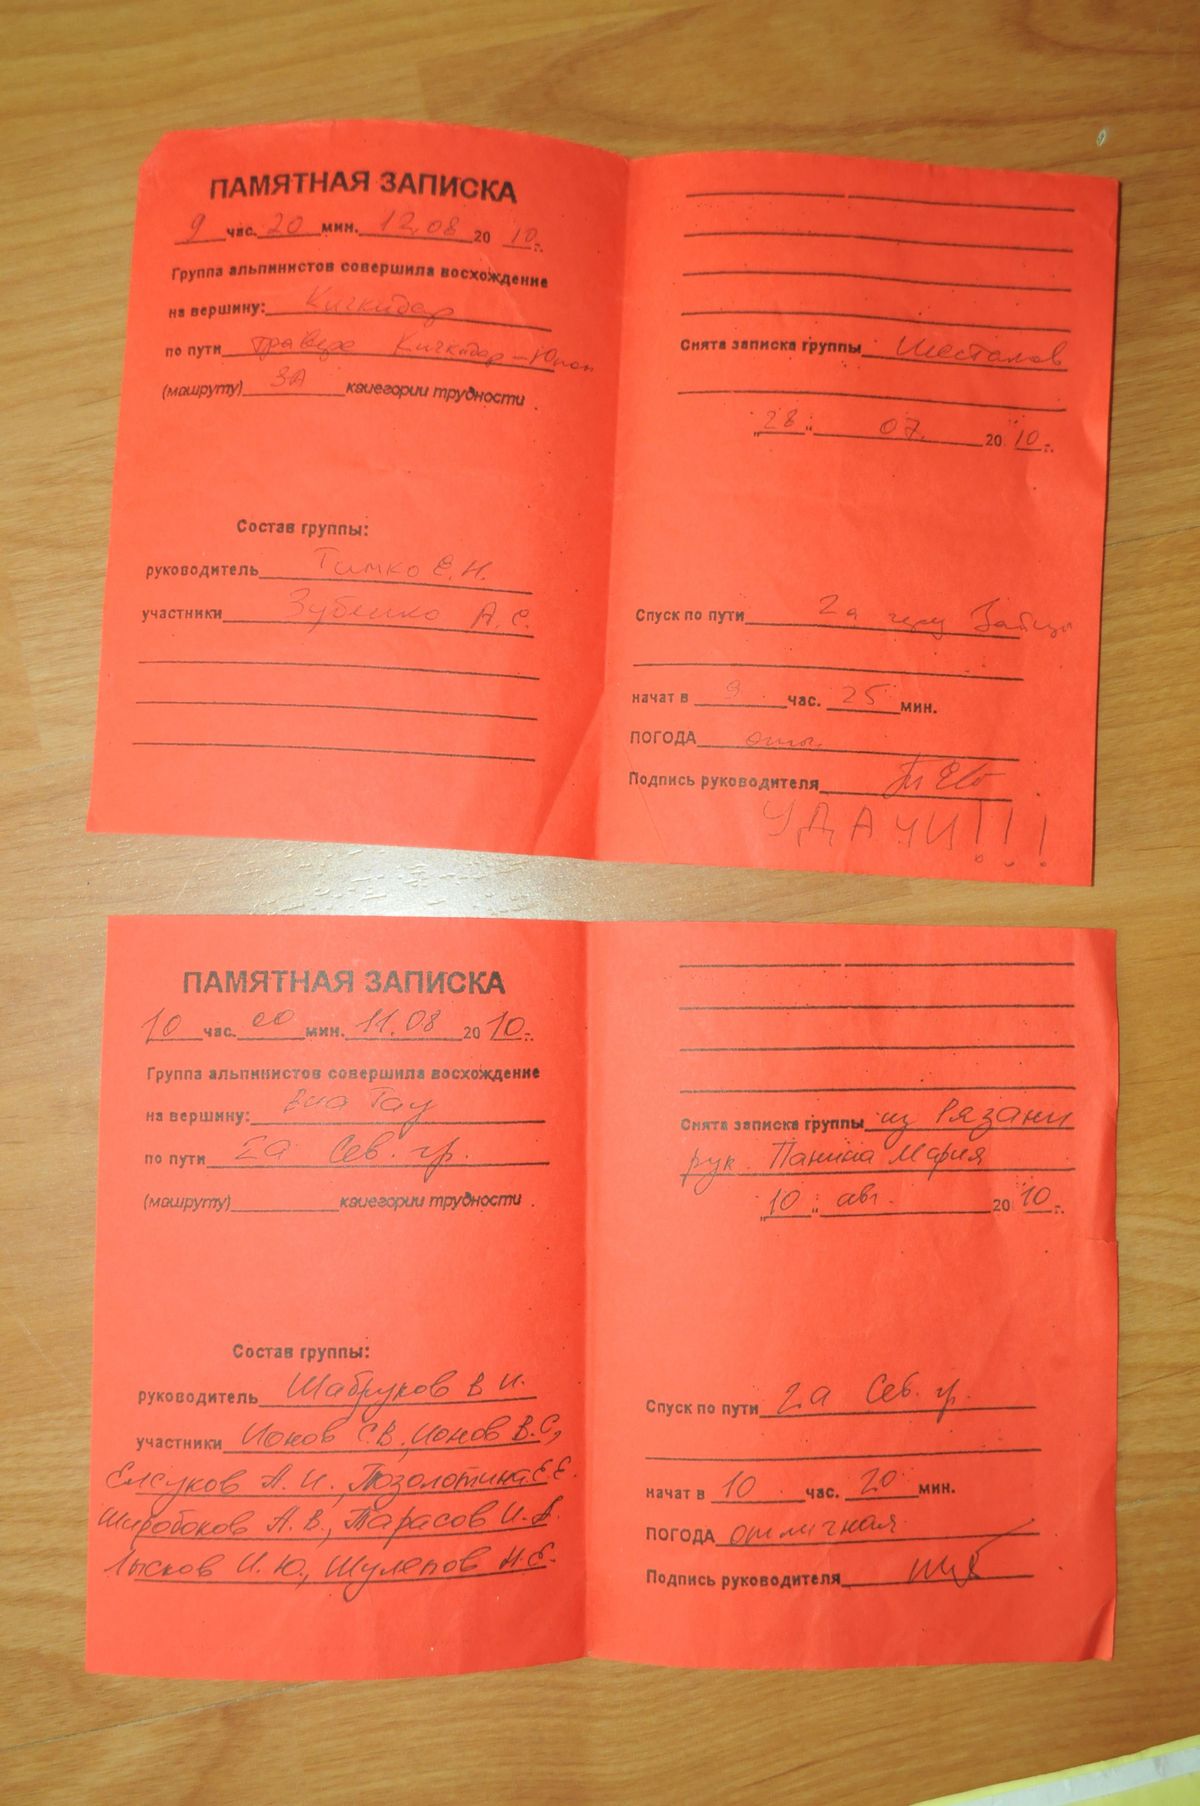 ПАМЯТНАЯ ЗАПИСКА
9 час. 20 мин. 12.08 20 10 г.
Группа альпинистов совершила восхождение
на вершину: Кичкидар
по пути траверс Кичкидар – Юнон
(машруту) 3А каиегории трудности
Состав группы:
руководитель Тимко Е.Н.
участники Зубенко А.С.
Снята записка группы Шесталов
"28" 07. 20 10 г.
Спуск по пути 2а через
начат в 9 час. 25 мин.
ПОГОДА отл.
Подпись руководителя
УДАЧИ!!!
ПАМЯТНАЯ ЗАПИСКА
10 час. 00 мин. 11.08 20 10 г.
Группа альпинистов совершила восхождение
на вершину: Виа Тау
по пути 2а Сев. гр.
(машруту) каиегории трудности
Состав группы:
руководитель Шабруков В.И.
участники Ионов С.В., Ионов В.С,
Елсуков А.И., Позолотина Е.Е.
Широбоков А.В., Тарасов И.А.
Лысков И.Ю., Шулепов Н.Е.
Снята записка группы из Рязани
рук. Панина Мария
"10" авг. 20 10 г.
Спуск по пути 2а Сев. гр.
начат в 10 час. 20 мин.
ПОГОДА отличная
Подпись руководителя